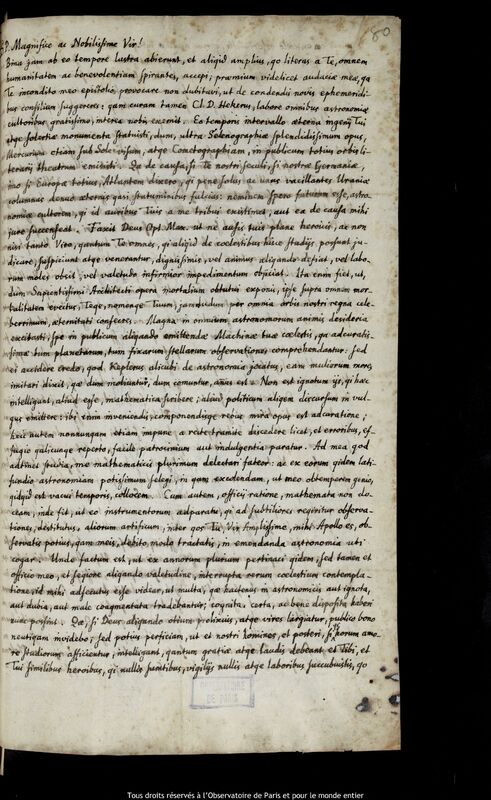 180
S.P. Magnifice ac Nobilissime Vir!
Bina jam ab eo tempore lustra abierunt, et aliqd amplius, qo literas a Te, omnem
humanitatem ac benevolentiam spirantes, accepi; præmium videlicet audaciæ meæ, qa
Te incondito meo epistolio provocare non dubitavi, ut de condendis novis ephemeridi-
bus consilium suggereres: qam curam tamen Cl. D. Hekerus, labore omnibus astronomiæ
cultoribus gratissimo, interea nobis exemit. Eo temporis intervallo æterna ingenij Tui
atqe solertiæ monumenta statuisti, dum, ultra Selenographiæ splendidissimum opus,
Mercurium etiam sub Sole visum, atqe Cometographiam, in publicum totius orbis li-
terarij theatrum emisisti. Qa de causa, si Te nostri seculi, si nostræ Germaniæ,
imo si Europæ totius, Atlantem dixero, qi pene solus ac unus vacillantes Uraniæ
columnas denuo æternis qasi statuminibus fulcias: neminem spero futurum esse, astro-
nomiæ cultorem, qi id auribus Tuis a me tribui existimet, aut ea de causa mihi
jure succenseat. Faxit Deus Opt. Max. ut ne ausis tuis plane heroicis, ac non
nisi tanto Viro, qantum Te omnes, qi aliqid de coelestibus hisce studijs possunt ju-
dicare, suspiciunt atqe venerantur, dignissimis, vel animus aliqando desciat, vel labo-
rum moles obsit, vel valetudo infirmior impedimentum objiciat. Ita enim fiet, ut,
dum Sapientissimi Architecti opera mortalium obtutui exponis, ipse supra omnem mor-
talitatem evectus, Teqe, nomenqe Tuum, jamdudum per omnia orbis nostri regna cele-
berrimum, æternitati consecres. Magna in omnium astronomorum animis desideria
excitasti, spe in publicum aliqando emittendæ Machinæ tuæ coelestis, qa adcuratis-
simæ tum planetarum, tum fixarum stellarum observationes comprehendantur: sed
ei accedere credo, qod Keplerus alicubi de astronomia jocatus, eam mulierum more,
imitari dixit, qæ dum moliuntur, dum comuntur, annus est. Non est ignotum ijs, qi hæc
intelligunt, aliud esse, mathematica scribere; aliud politicum aliqem discursum in vul-
gus emittere: ibi enim inveniendis, componendisqe rebus mira opus est adcuratione;
heic autem nonnunqam etiam impune a recto tramite discedere licet, et erroribus, ef-
fugio qalicunqe reperto, facile patrocinium aut indulgentia paratur. Ad mea qod
adtinet studia, me mathematicis plurimum delectari fateor: ac ex eorum qidem lati-
fundio astronomiam potissimum selegi, in qam excolendam, ut meo obtemperem genio,
qidqid est vacui temporis, collocem. Cum autem, officij ratione, mathemata non do-
ceam, inde fit, ut eo instrumentorum adparatu, qi ad subtiliores reqiritur observa-
tiones, destitutus, aliorum artificum, inter qos Tu Vir Amplissime, mihi Apollo es, ob-
servatis potius, qam meis, debito modo tractatis, in emendanda astronomia uti
cogar. Unde factum est, ut ex annorum plurium pertinaci qidem, sed tamen et
officio meo, et segiore aliqando valetudine, interrupta rerum coelestium contempla-
tione, id mihi adsecutus esse videar, ut multa, qæ hactenus in astronomicis aut ignota,
aut dubia, aut male congmentata tradebantur, cognita, certa, ac bene disposita haberi
nunc possint. Qæ, si Deus aliqando otium prolixius, atqe vires largiatur, publico bono
neutiqam invidebo; sed potius perficiam, ut et nostri homines, et posteri, si qi horum amo-
re studiorum afficientur, intelligant, qantum gratiæ atqe laudis debeant et Tibi, et
Tui similibus heroibus, qi nullis sumtibus, vigilijs nullis atqe laboribus succubuistis, qo
OBSERVATOIRE
DE PARIS
Tous droits réservés à l'Observatoire de Paris et pour le monde entier